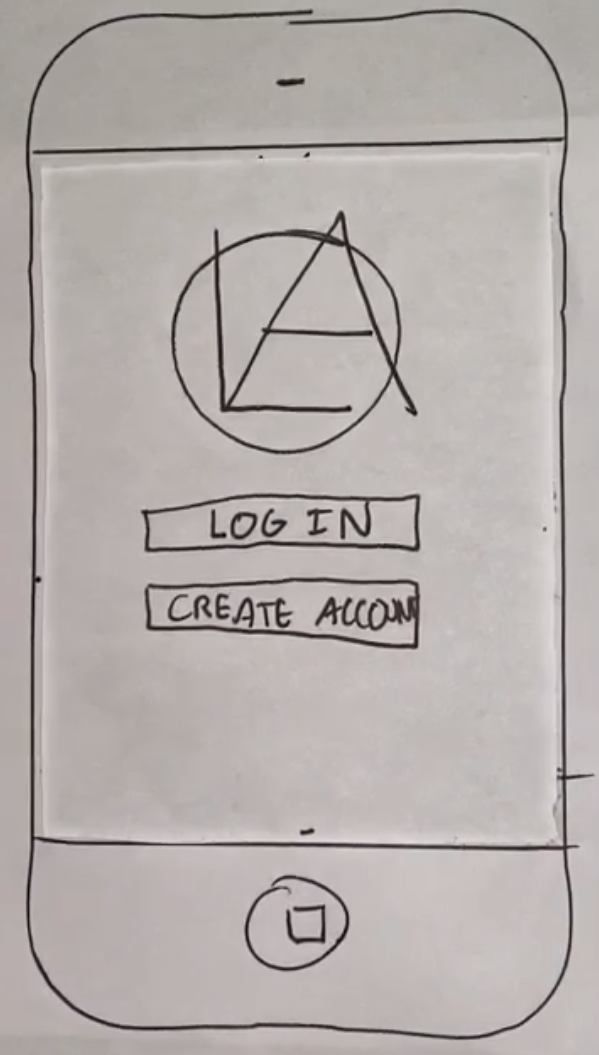 LA
LOG IN
CREATE ACCOUN